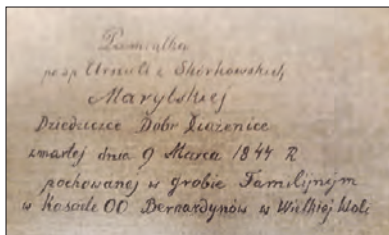 Pamiątka
po śp Urszuli z Skórkowskich
Marylskiej
Dziedziczce Dobr Xiążenice
zmarłej dnia 9 Marca 1844 R
pochowanej w grobie Familijnym
w Kosciele OO Bernardynów w Wielkiej Woli